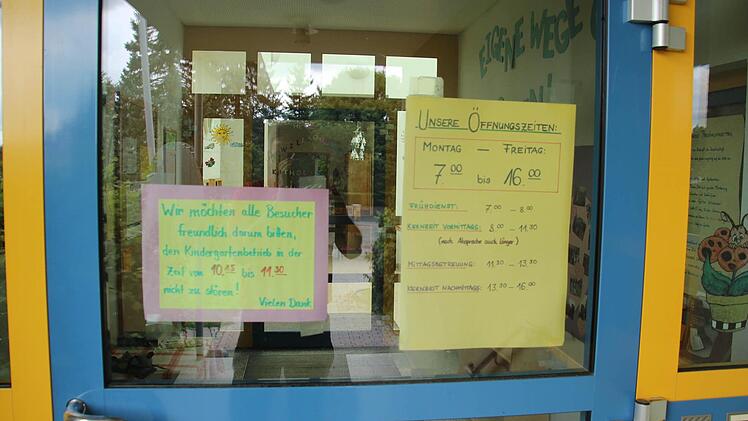 EIGENE WEGE
UNSERE ÖFFNUNGSZEITEN:
MONTAG — FREITAG:
7.00 bis 16.00
FRÜHDIENST: 7.00 – 8.00
KERNZEIT VORMITTAGS: 8.00 – 11.30
(nach Absprache auch länger)
MITTAGSBETREUUNG: 11.30 – 13.30
KERNZEIT NACHMITTAGS: 13.30 – 16.00
Wir möchten alle Besucher
freundlich darum bitten,
den Kindergartenbetrieb in der
Zeit von 10.15 bis 11.30
nicht zu stören!
Vielen Dank